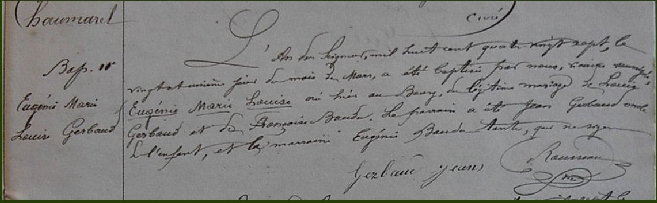 Chaumaret
Curé
Bap. 15
Eugénie Marie
Louise Gerbaud
L'An du Seigneur, mil huit cent quatre vingt sept, le
vingt et unième jour du mois de Mars, a été baptisé par nous, soussigné
Eugénie Marie Louise née hier au Bourg, du légitime mariage de Louis
Gerbaud et de Françoise Baude. Le parrain a été Jean Gerbaud oncle
de l'enfant, et la marraine Eugénie Baude tante, qui ne signe
Gerbaud Jean
Rousseau